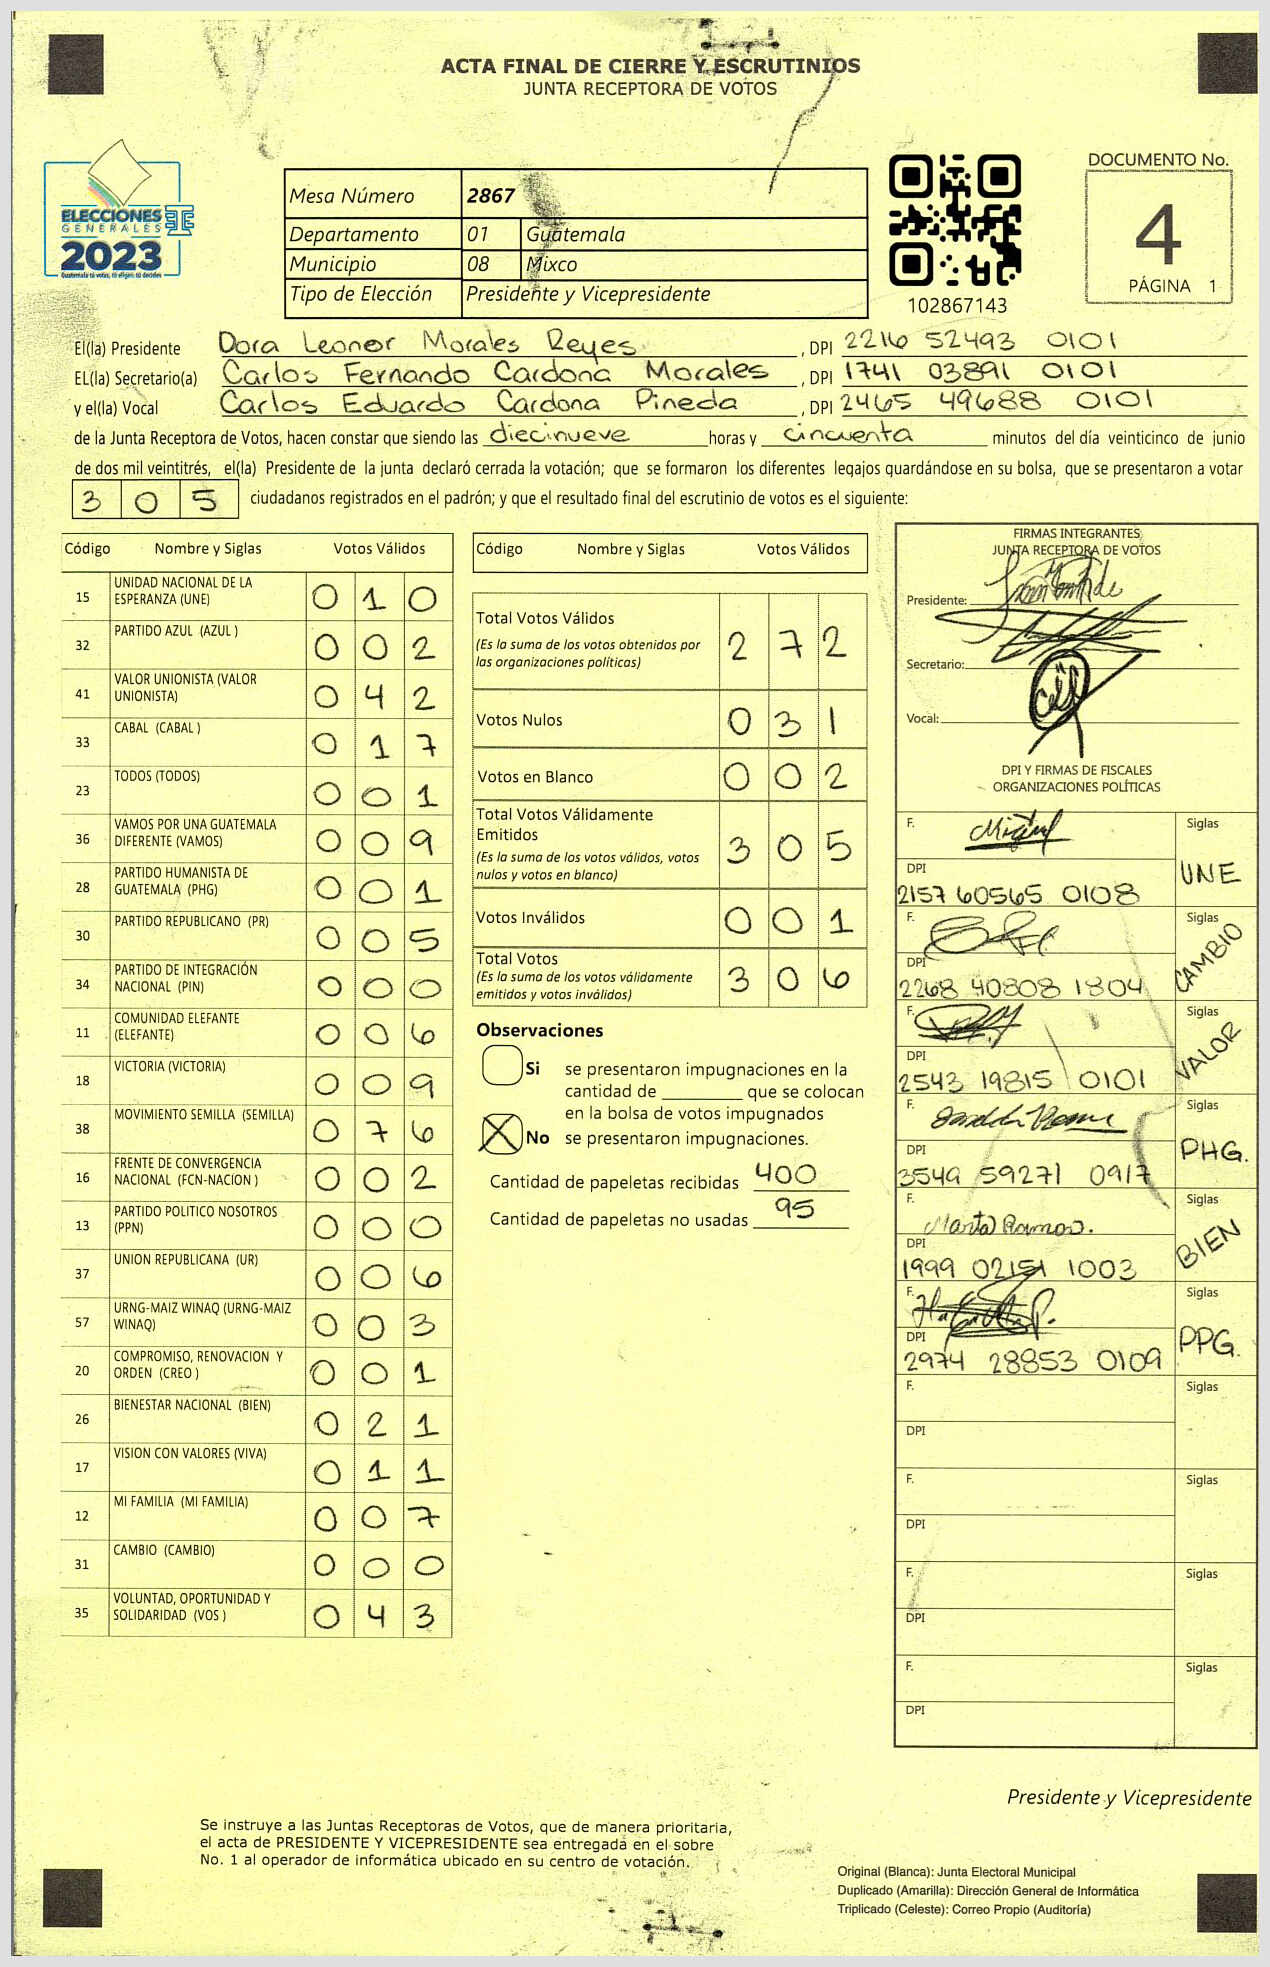 ACTA FINAL DE CIERRE Y ESCRUTINIOS
JUNTA RECEPTORA DE VOTOS
ELECCIONES
GENERALES
2023
Guatemala tú votas, tú eliges, tú decides
Mesa Número 2867
Departamento 01 Guatemala
Municipio 08 Mixco
Tipo de Elección Presidente y Vicepresidente
102867143
DOCUMENTO No.
4
PÁGINA 1
El(la) Presidente Dora Leonor Morales Reyes, DPI 2216 52493 0101
EL(la) Secretario(a) Carlos Fernando Cardona Morales, DPI 1741 03891 0101
y el(la) Vocal Carlos Eduardo Cardona Pineda, DPI 2465 49688 0101
de la Junta Receptora de Votos, hacen constar que siendo las diecinueve horas y cincuenta minutos del día veinticinco de junio
de dos mil veintitrés, el(la) Presidente de la junta declaró cerrada la votación; que se formaron los diferentes legajos guardándose en su bolsa, que se presentaron a votar
305 ciudadanos registrados en el padrón; y que el resultado final del escrutinio de votos es el siguiente:
Código Nombre y Siglas Votos Válidos
15 UNIDAD NACIONAL DE LA ESPERANZA (UNE) 010
32 PARTIDO AZUL (AZUL ) 002
41 VALOR UNIONISTA (VALOR UNIONISTA) 042
33 CABAL (CABAL ) 017
23 TODOS (TODOS) 001
36 VAMOS POR UNA GUATEMALA DIFERENTE (VAMOS) 009
28 PARTIDO HUMANISTA DE GUATEMALA (PHG) 001
30 PARTIDO REPUBLICANO (PR) 005
34 PARTIDO DE INTEGRACIÓN NACIONAL (PIN) 000
11 COMUNIDAD ELEFANTE (ELEFANTE) 006
18 VICTORIA (VICTORIA) 009
38 MOVIMIENTO SEMILLA (SEMILLA) 076
16 FRENTE DE CONVERGENCIA NACIONAL (FCN-NACION ) 002
13 PARTIDO POLITICO NOSOTROS (PPN) 000
37 UNION REPUBLICANA (UR) 006
57 URNG-MAIZ WINAQ (URNG-MAIZ WINAQ) 003
20 COMPROMISO, RENOVACION Y ORDEN (CREO ) 001
26 BIENESTAR NACIONAL (BIEN) 021
17 VISION CON VALORES (VIVA) 011
12 MI FAMILIA (MI FAMILIA) 007
31 CAMBIO (CAMBIO) 000
35 VOLUNTAD, OPORTUNIDAD Y SOLIDARIDAD (VOS ) 043
Código Nombre y Siglas Votos Válidos
Total Votos Válidos 272
(Es la suma de los votos obtenidos por
las organizaciones políticas)
Votos Nulos 031
Votos en Blanco 002
Total Votos Válidamente
Emitidos 305
(Es la suma de los votos válidos, votos
nulos y votos en blanco)
Votos Inválidos 001
Total Votos 306
(Es la suma de los votos válidamente
emitidos y votos inválidos)
Observaciones
Si se presentaron impugnaciones en la
cantidad de ________ que se colocan
en la bolsa de votos impugnados
X No se presentaron impugnaciones.
Cantidad de papeletas recibidas 400
Cantidad de papeletas no usadas 95
FIRMAS INTEGRANTES
JUNTA RECEPTORA DE VOTOS
Presidente:
Secretario:
Vocal:
DPI Y FIRMAS DE FISCALES
ORGANIZACIONES POLÍTICAS
F. Siglas
DPI UNE
2157 60565 0108
F. Siglas
DPI CAMBIO
2268 40808 1804
F. Siglas
DPI VALOR
2543 19815 0101
F. Siglas
DPI PHG.
3549 59271 0917
F. Marta Ramos. Siglas
DPI BIEN
1999 02151 1003
F. Siglas
DPI PPG.
2974 28853 0109
F. Siglas
DPI
F. Siglas
DPI
F. Siglas
DPI
F. Siglas
DPI
Presidente y Vicepresidente
Se instruye a las Juntas Receptoras de Votos, que de manera prioritaria,
el acta de PRESIDENTE Y VICEPRESIDENTE sea entregada en el sobre
No. 1 al operador de informática ubicado en su centro de votación.
Original (Blanca): Junta Electoral Municipal
Duplicado (Amarilla): Dirección General de Informática
Triplicado (Celeste): Correo Propio (Auditoría)